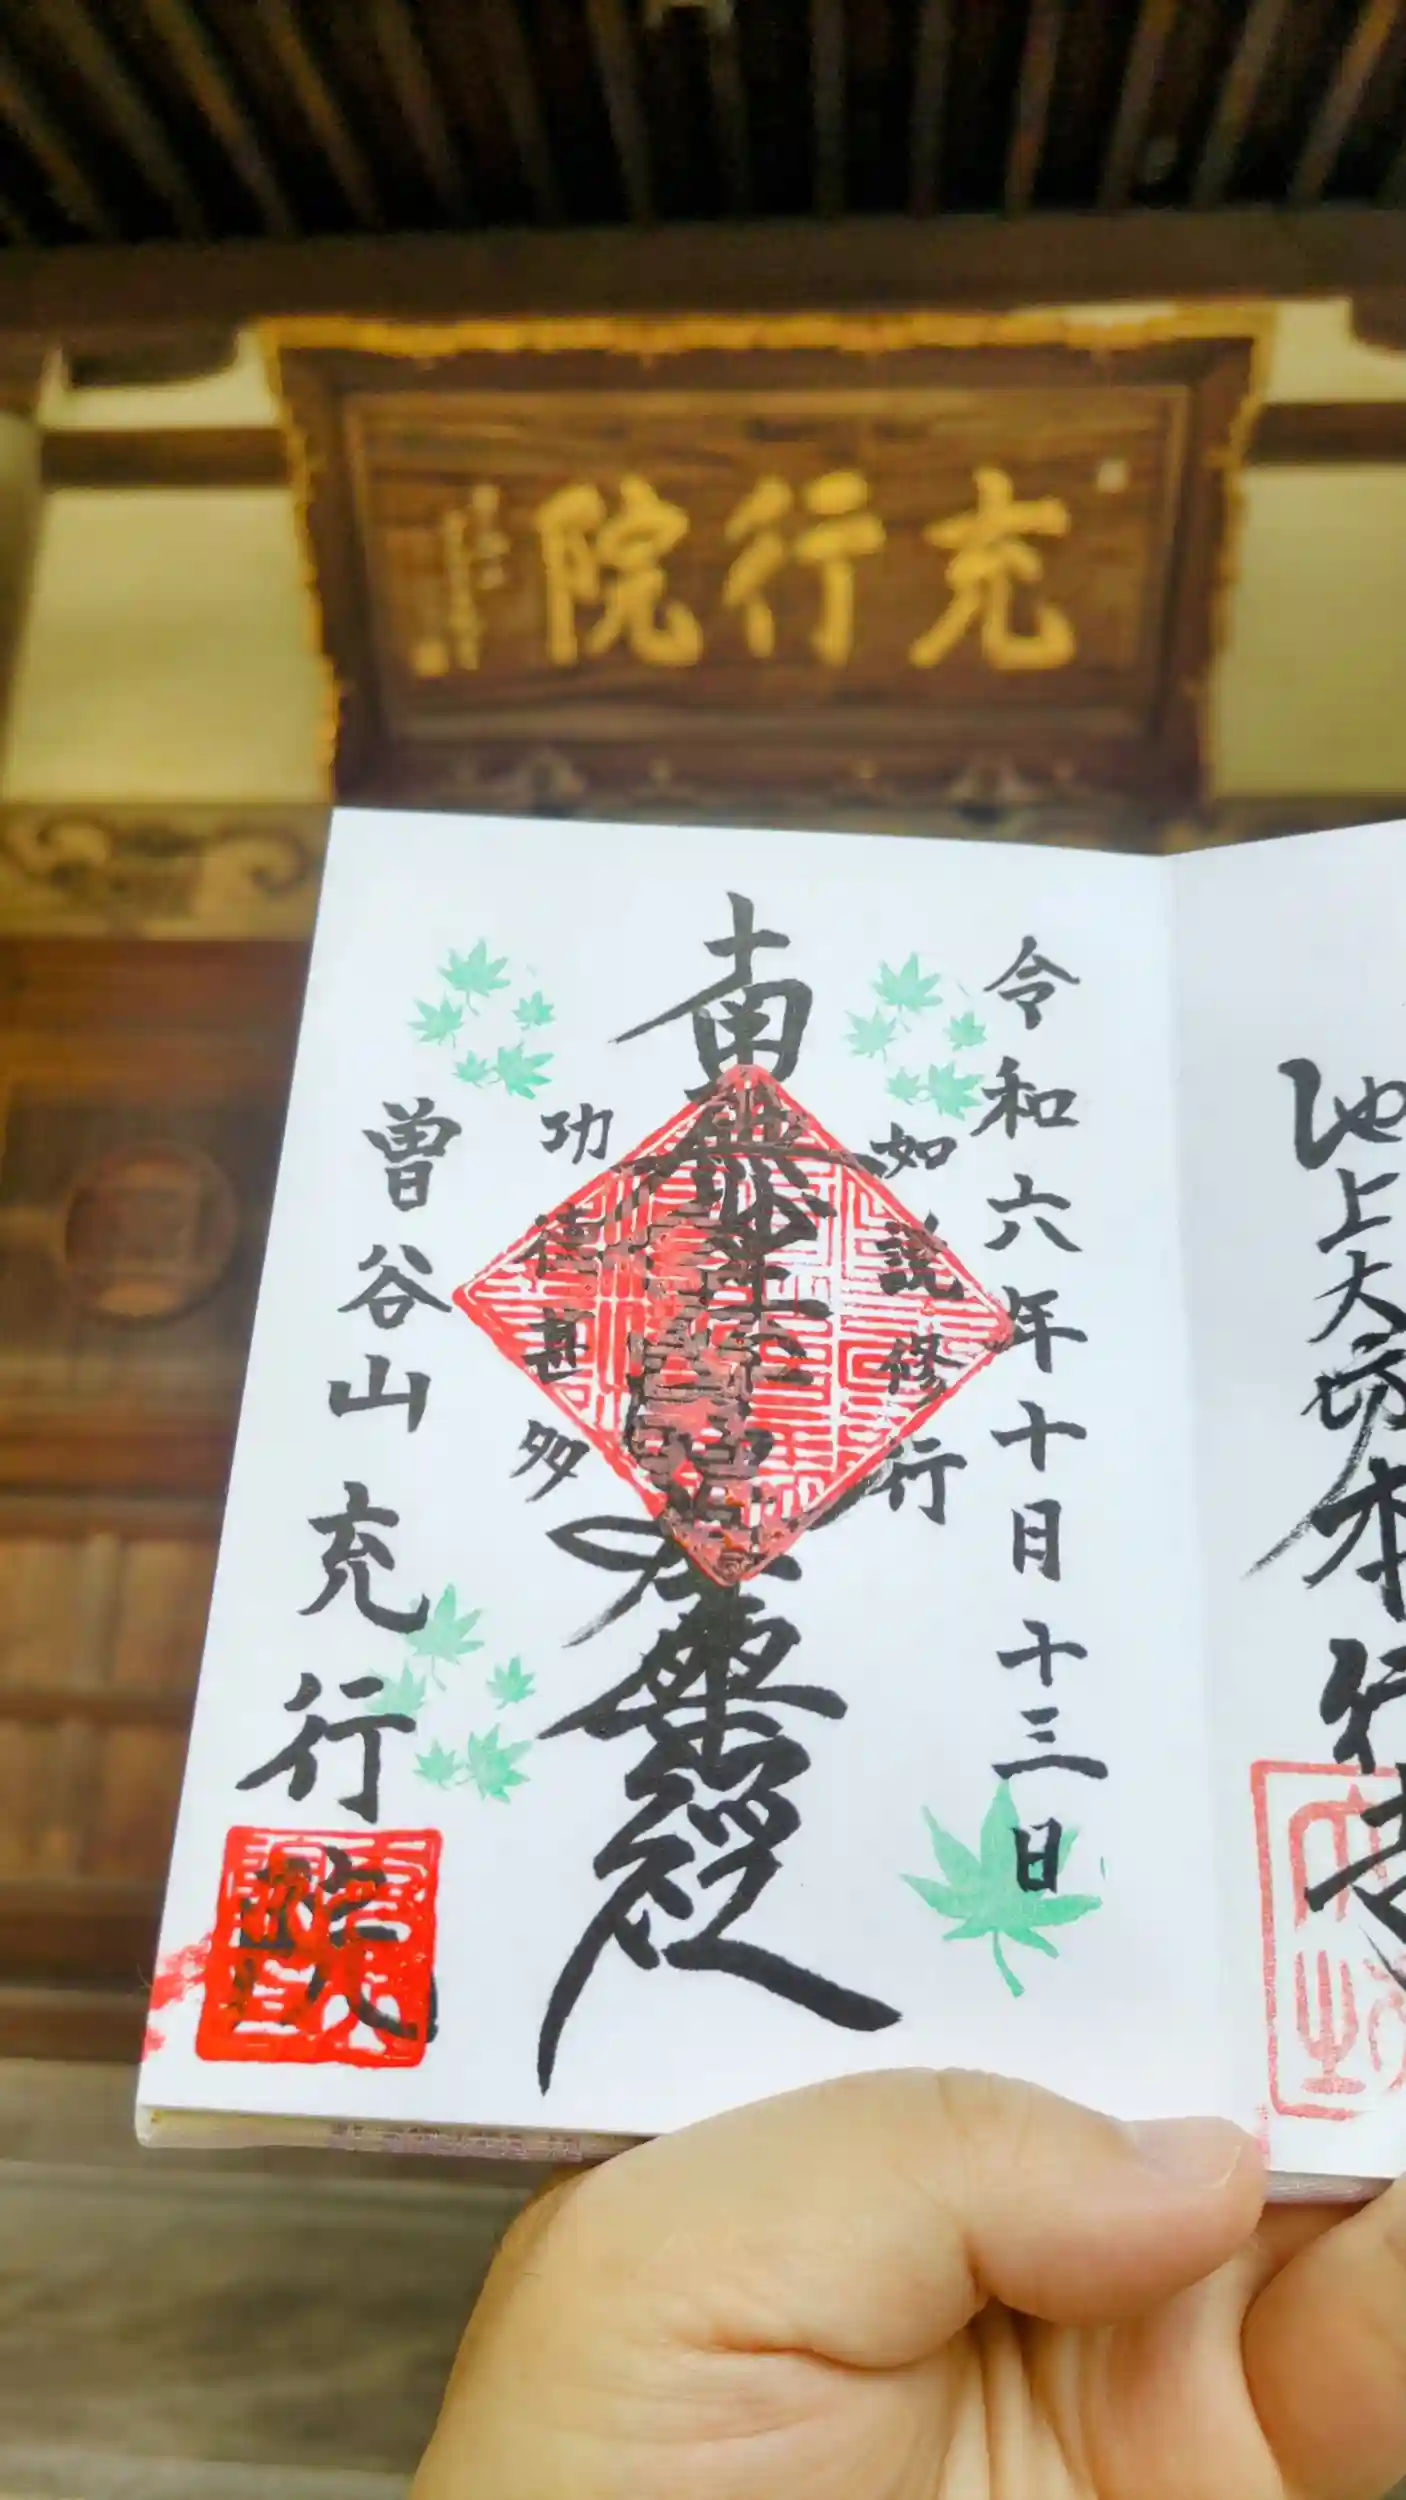 充行院
令和六年十月十三日
如説修行
南無妙法蓮華経
功徳甚多
曽谷山充行院
池上大坊本行寺